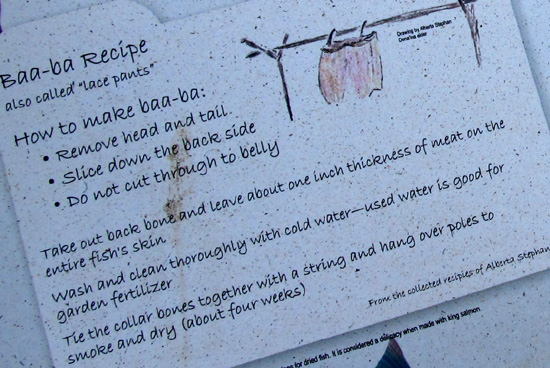 Baa-ba Recipe
also called "lace pants"
Drawing by Alberta Stephan
Dena'ina elder
How to make baa-ba:
• Remove head and tail
• Slice down the back side
• Do not cut through to belly
Take out back bone and leave about one inch thickness of meat on the
entire fish's skin
Wash and clean thoroughly with cold water—used water is good for
garden fertilizer
Tie the collar bones together with a string and hang over poles to
smoke and dry (about four weeks)
From the collected recipies of Alberta Stephan
for dried fish. It is considered a delicacy when made with king salmon